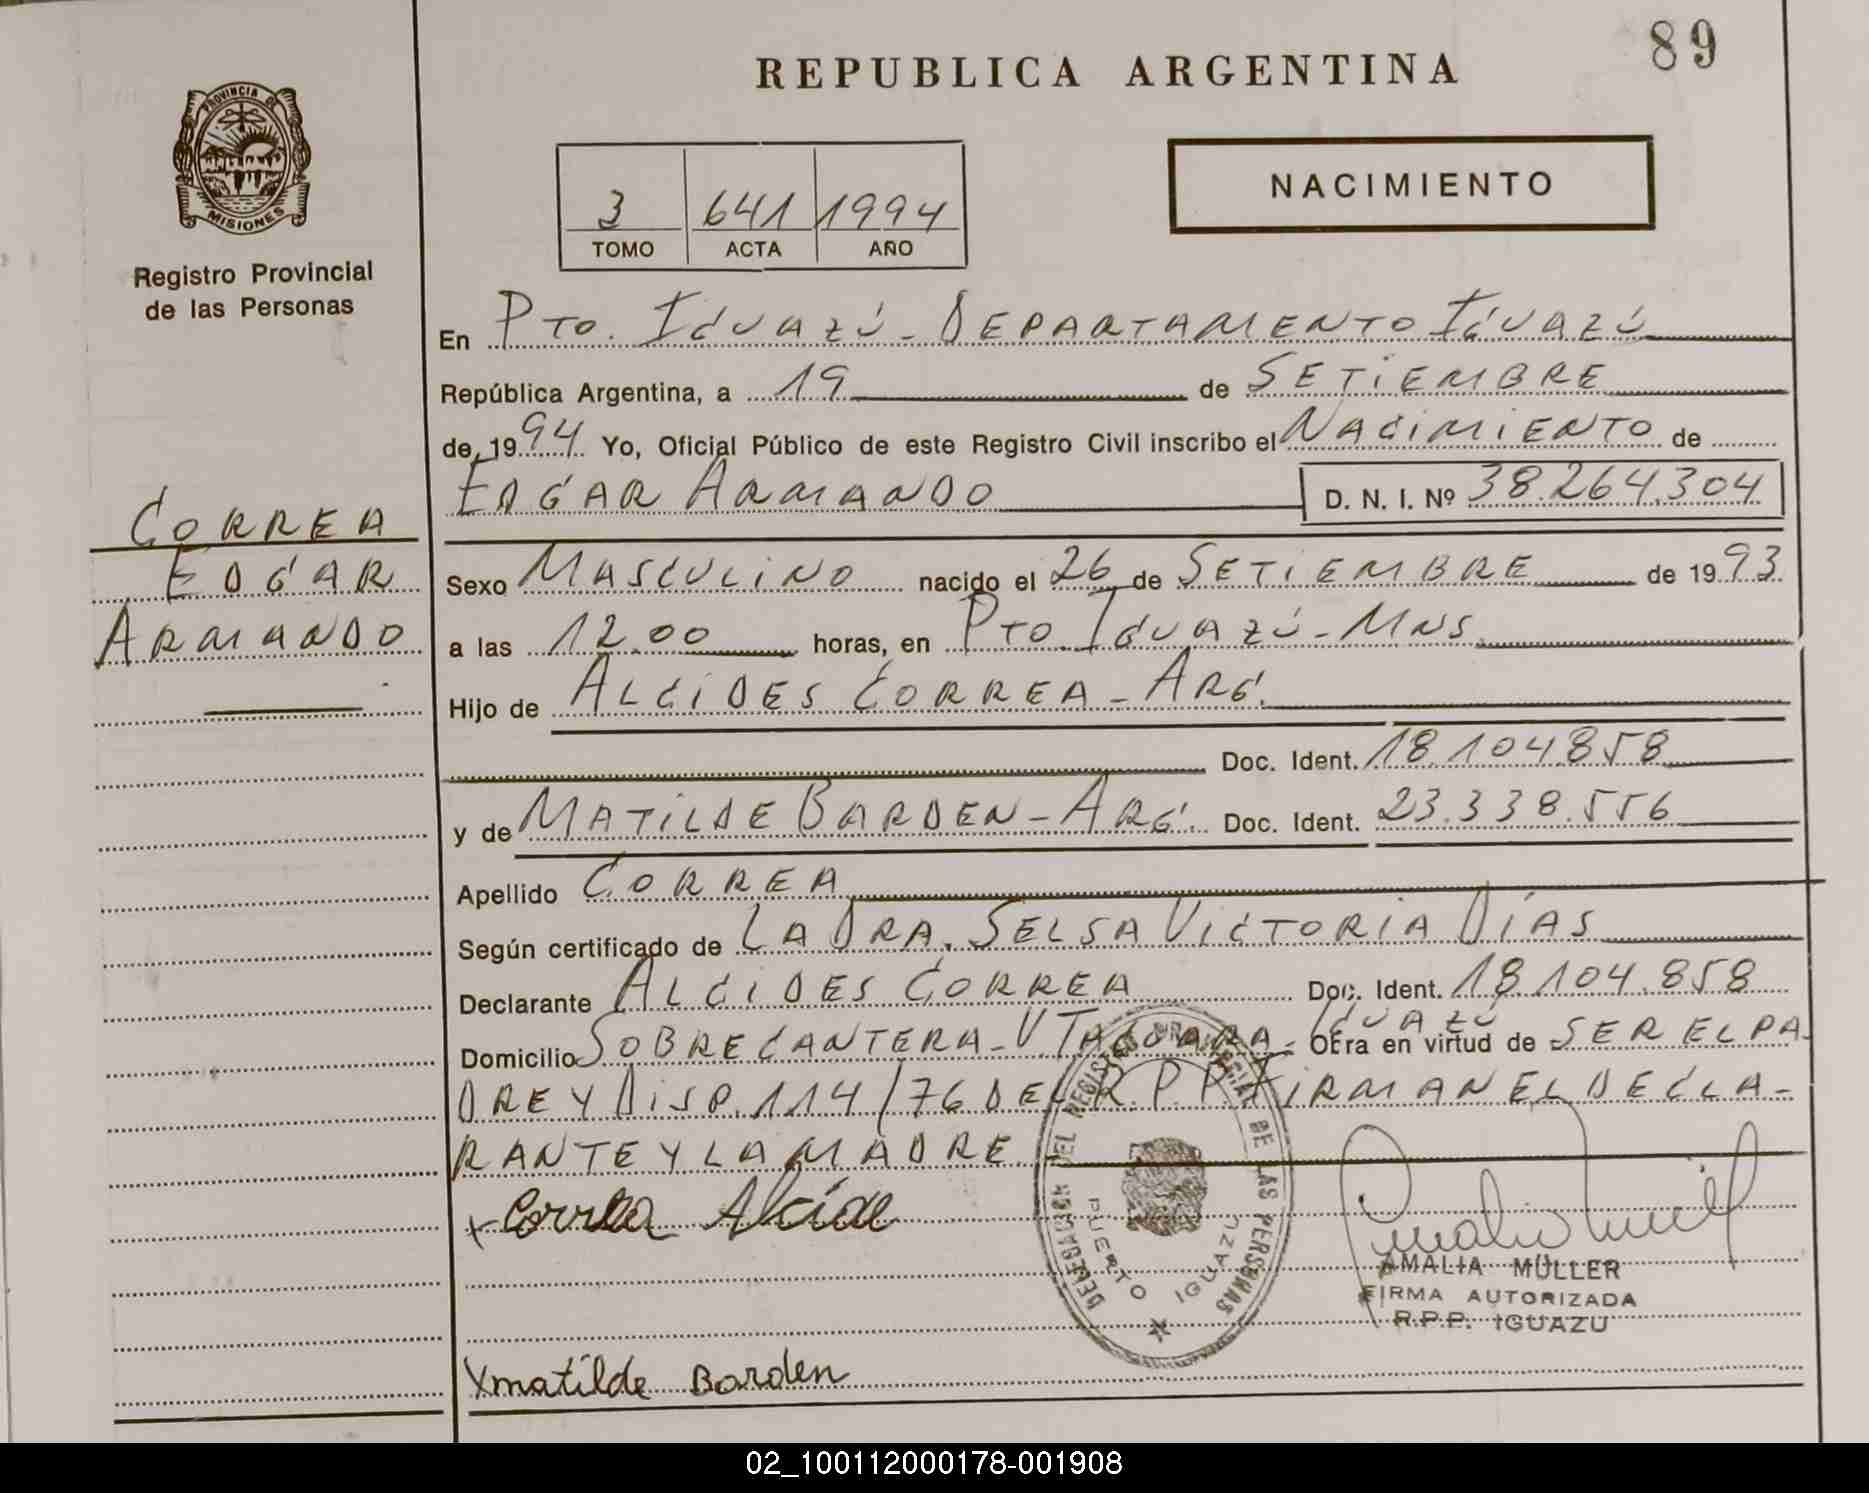 REPUBLICA ARGENTINA
89
PROVINCIA DE
MISIONES
Registro Provincial
de las Personas
3 641 1994
TOMO ACTA AÑO
NACIMIENTO
En PTO. IGUAZÚ - DEPARTAMENTO IGUAZÚ
República Argentina, a 19 de SETIEMBRE
de 1994 Yo, Oficial Público de este Registro Civil inscribo el NACIMIENTO de
EDGAR ARMANDO D. N. I. Nº 38.264.304
CORREA
EDGAR
ARMANDO
Sexo MASCULINO nacido el 26 de SETIEMBRE de 1993
a las 12.00 horas, en PTO. IGUAZÚ - MNS.
Hijo de ALCIDES CORREA - ARG.
Doc. Ident. 18.104.858
y de MATILDE BARDEN - ARG. Doc. Ident. 23.338.556
Apellido CORREA
Según certificado de LA DRA. SELSA VICTORIA DÍAS
Declarante ALCIDES CORREA Doc. Ident. 18.104.858
Domicilio SOBRE CANTERA - V. TACUARA - IGUAZÚ Obra en virtud de SER EL PA-
DRE Y DISP. 114/76 DEL R.P.P. FIRMAN EL DECLA-
RANTE Y LA MADRE
x Correa Alcide
DELEGACION DEL REGISTRO PROVINCIAL DE LAS PERSONAS
PUERTO IGUAZU
AMALIA MÜLLER
FIRMA AUTORIZADA
R.P.P. IGUAZU
x matilde Barden
02_100112000178-001908